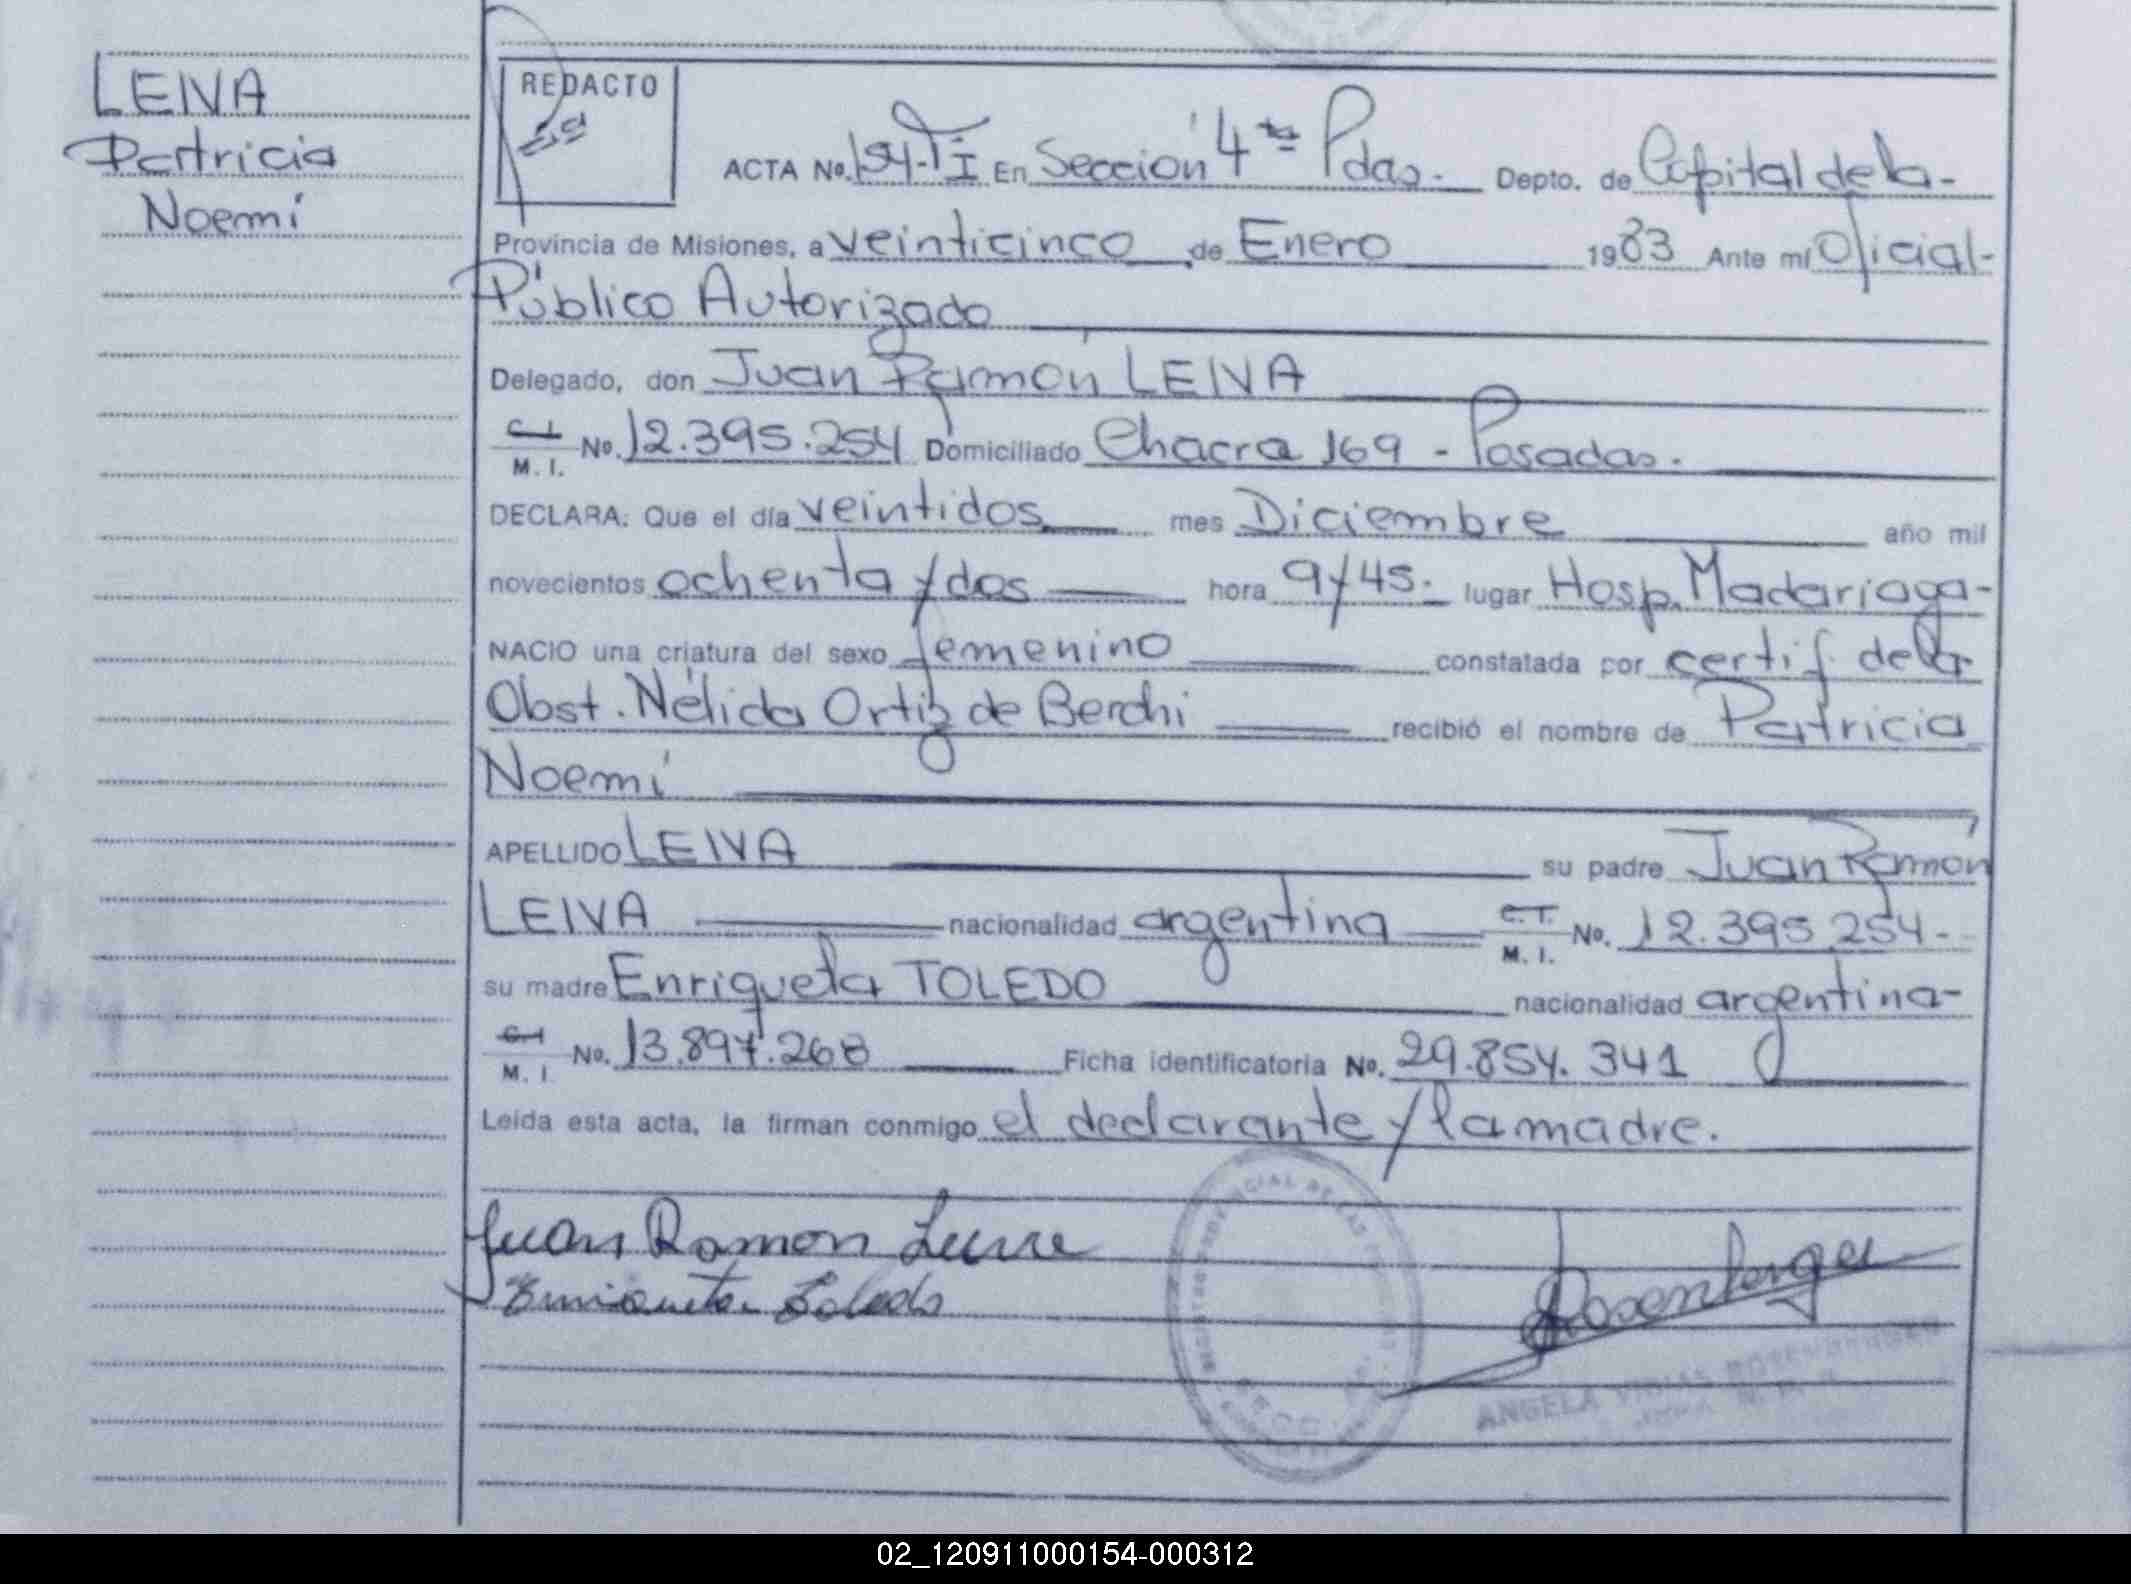 LEIVA
Patricia
Noemí
REDACTO
ACTA No. 154-TI En Sección 4ta Pdas. Depto. de Capital de la-
Provincia de Misiones, a veinticinco de Enero 1983 Ante mí Oficial-
Público Autorizado
Delegado, don Juan Ramón LEIVA
C. I. M. I. No. 12.395.254 Domiciliado Chacra 169 - Posadas.
DECLARA: Que el día veintidos mes Diciembre año mil
novecientos ochenta y dos hora 9 y 45. lugar Hosp. Madariaga-
NACIO una criatura del sexo femenino constatada por certif. de la
Obst. Nélida Ortiz de Berchi recibió el nombre de Patricia
Noemí
APELLIDO LEIVA su padre Juan Ramón
LEIVA nacionalidad argentina C. I. M. I. No. 12.395.254-
su madre Enriqueta TOLEDO nacionalidad argentina-
C. I. M. I No. 13.897.268 Ficha identificatoria No. 29.854.341
Leída esta acta, la firman conmigo el declarante y la madre.
Juan Ramon Leiva
Enriqueta Toledo
Rosenberger
ANGELA ROSENBERGER
02_120911000154-000312